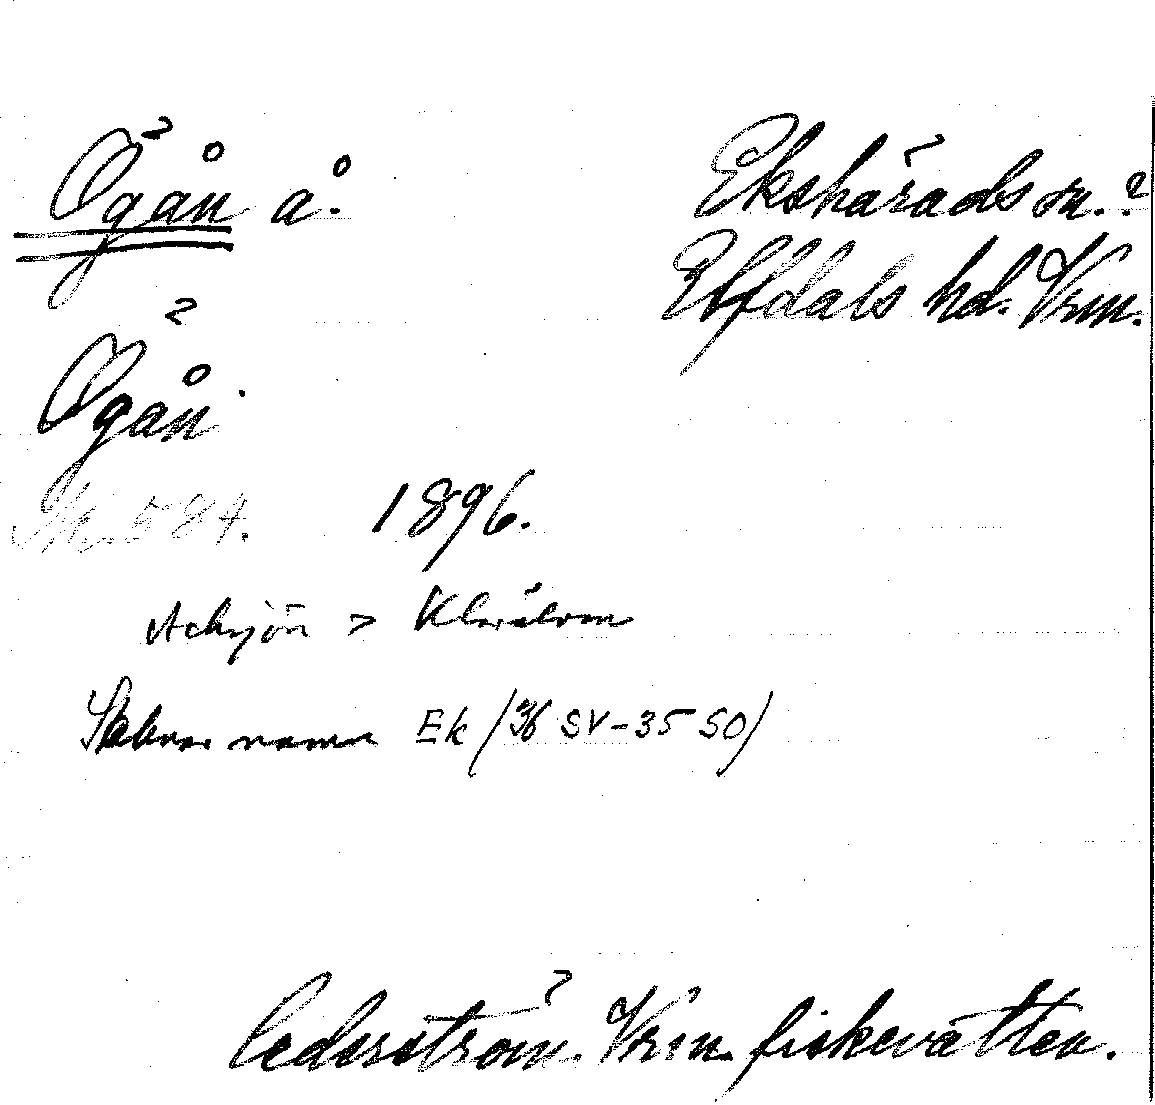 Ögån å.
Ekshärads sn.?
Elfdals hd. Vrm.
Ögån
Nr. 584. 1896.
> Klarälven
Saknar namn Ek (36 SV-35 SO)
Cederström. Vrm. fiskevatten.